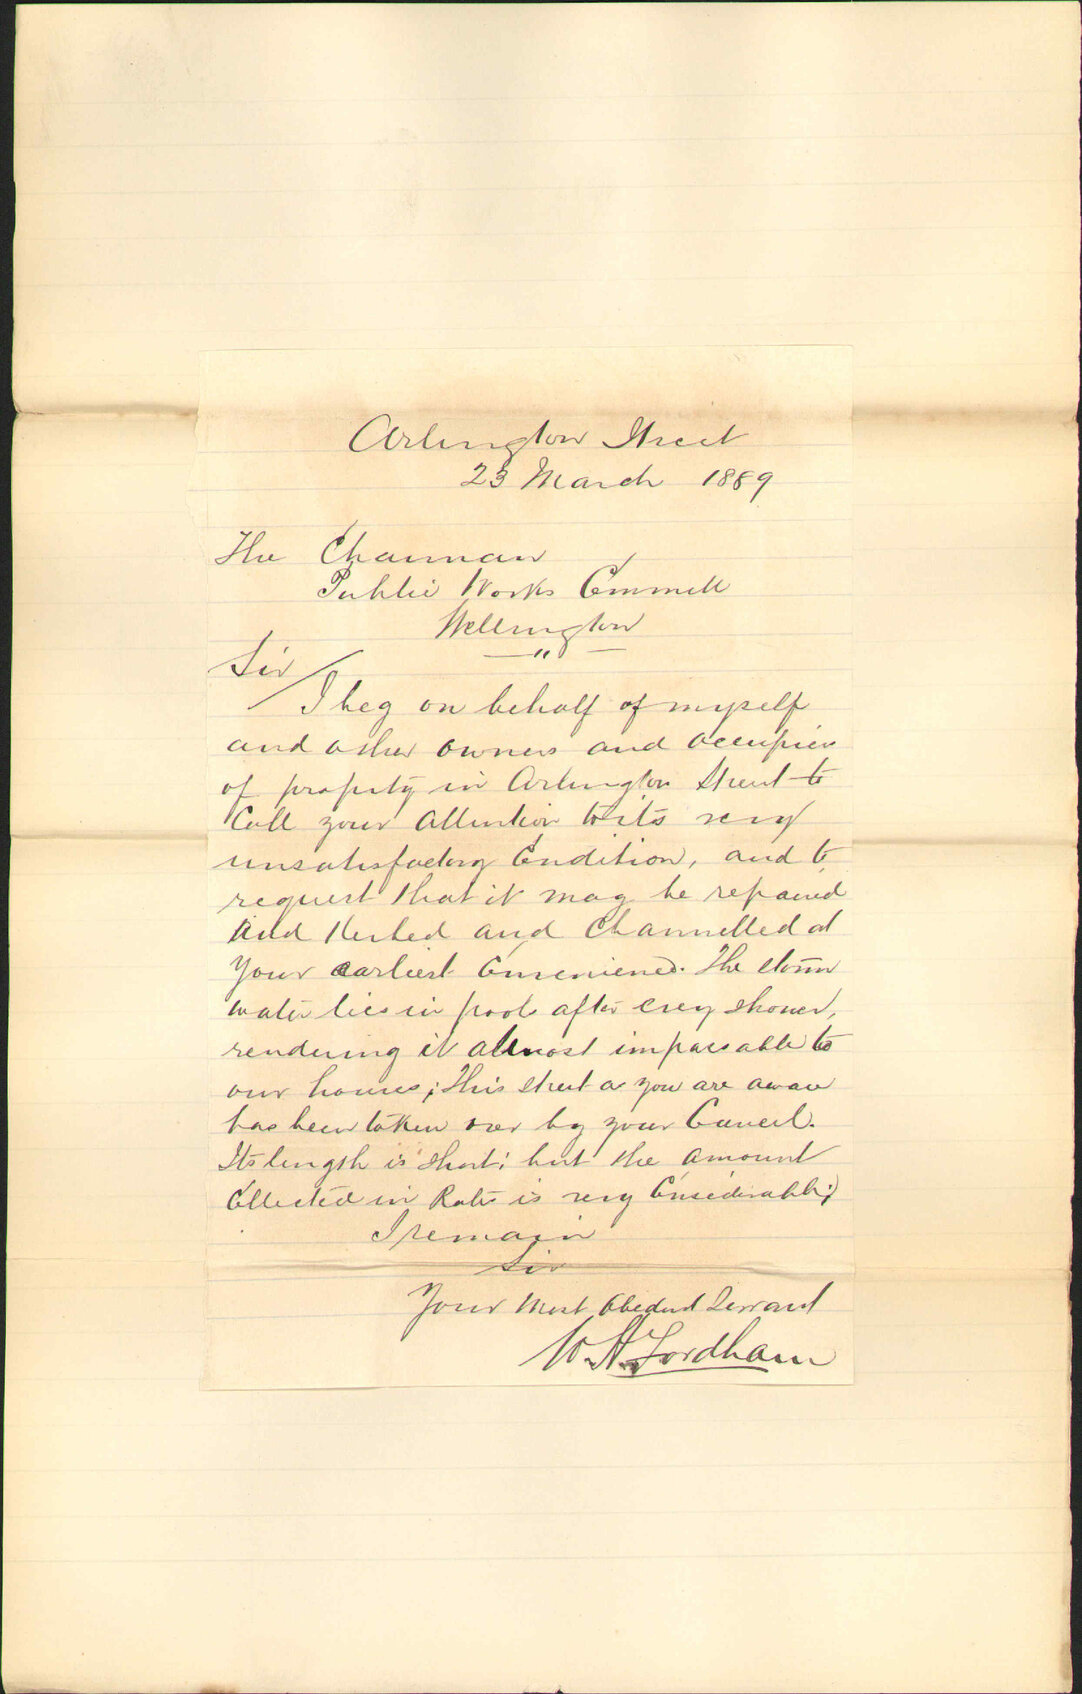 Arlington Street
23 March 1889
The Chairman
Public Works Committ
Wellington
"
Sir/
I beg on behalf of myself
and other owners and occupiers
of property in Arlington Street to
Call your Attention to its very
unsatisfactory Condition, and to
request that it may be repaired
And Kerbed and Channelled at
Your earliest Convenience. The storm
water lies in pools after every shower,
rendering it almost impassable to
our houses; This street as you are aware
has been taken over by your Council.
Its length is short; but the amount
Collected in Rates is very Considerable;
I remain
Sir
Your Most Obedient Servant
W. H. Fordham